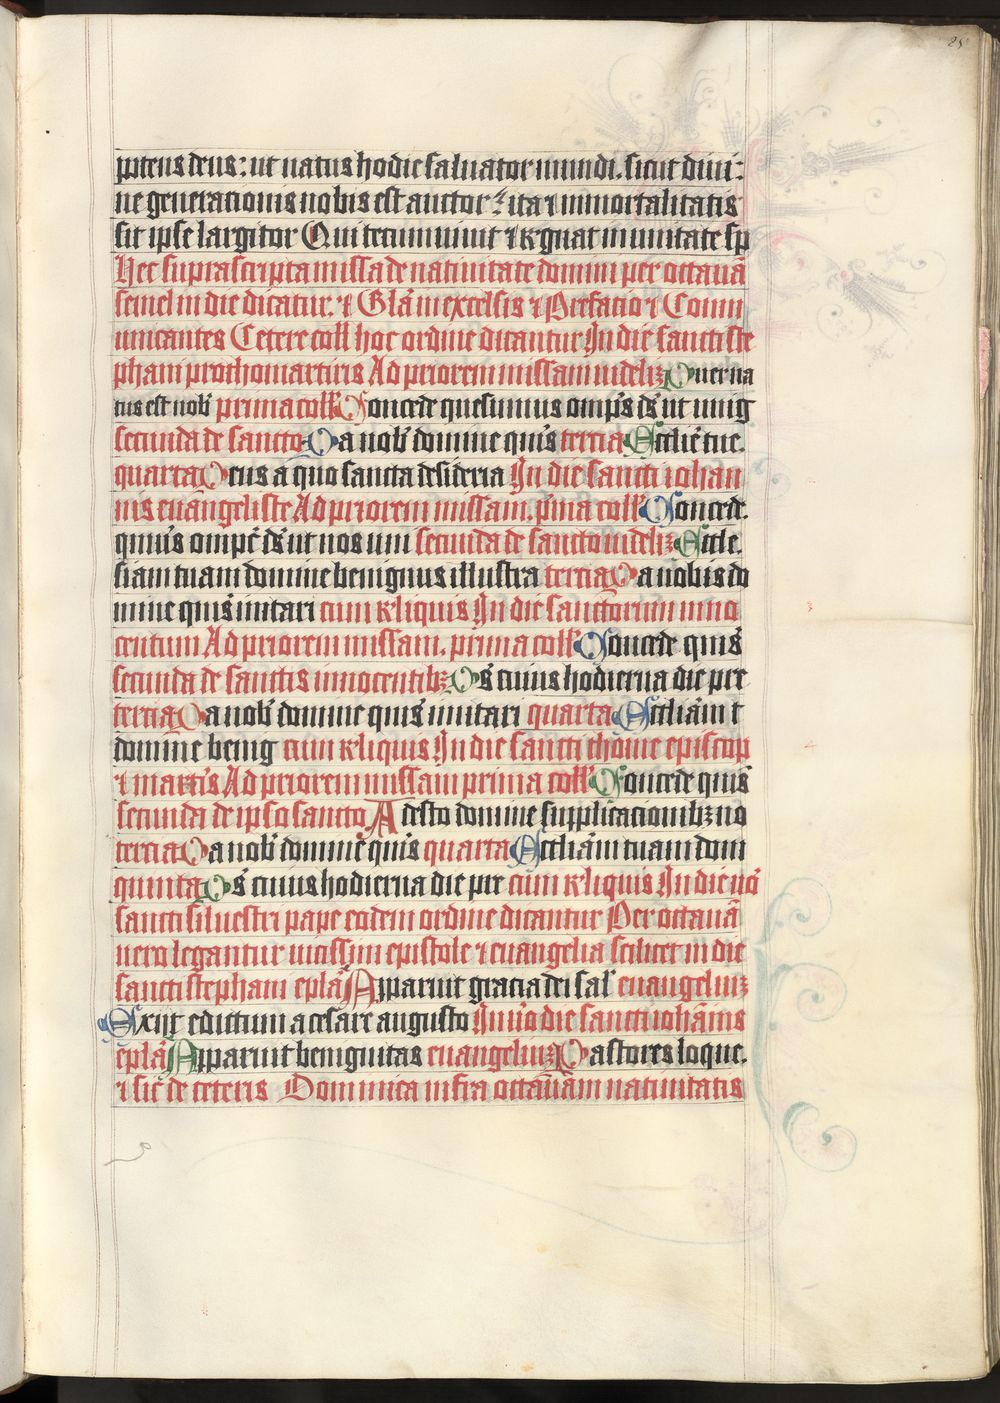 25
potens deus: ut natus hodie saluator mundi. sicut diui:
ne generacionis nobis est auctor: ita ⁊ immortalitatis
sit ipse largitor Qui tecum uiuit ⁊ regnat in unitate sp
Hec suprascripta missa de natiuitate domini per octauā
semel in die dicatur. ⁊ Glā in excelsis ⁊ Prefacio ⁊ Comu
nicantes Cetere coll hoc ordine dicantur In die sancti ste
phani prothomartiris Ad priorem missam uidelicꝫ Puer na
tus est nob prima coll Concede quesumus omps ds ut unig
secunda de sancto Da nob domine quis tercia Ecclie tue.
quarta Deus a quo sancta desideria In die sancti iohan
nis euangeliste Ad priorem missam. pma coll Concede.
quius ompc ds ut nos uni secunda de sancto uidelicꝫ Eccle.
siam tuam domine benignus illustra tercia Da nobis do
mine quis imitari cum reliquis In die sanctorum inno
centum Ad priorem missam. prima coll Concede quis
secunda de sanctis innocentibꝫ Ds cuius hodierna die pre
tercia Da nob domine quis imitari quarta Eccliam t
domine benig cum reliquis In die sancti thome episcop
⁊ martis Ad priorem missam prima coll Concede quis
secunda de ipso sancto Adesto domine supplicacionibꝫ no
tercia Da nob domine quis quarta Eccliam tuam dom
quinta Ds cuius hodierna die pre cum reliquis In die uō
sancti siluestri pape eodem ordine dicantur Per octauā
uero legantur uicissim epistole ⁊ euangelia scilicet in die
sancti stephani eplā Apparuit gracia dei sal euangeliuꝫ
Exijt edictum a cesare augusto In uo die sancti iohānis
eplā Apparuit benignitas euangeliuꝫ Pastores loque.
⁊ sic de ceteris Dominica infra octauam natiuitatis